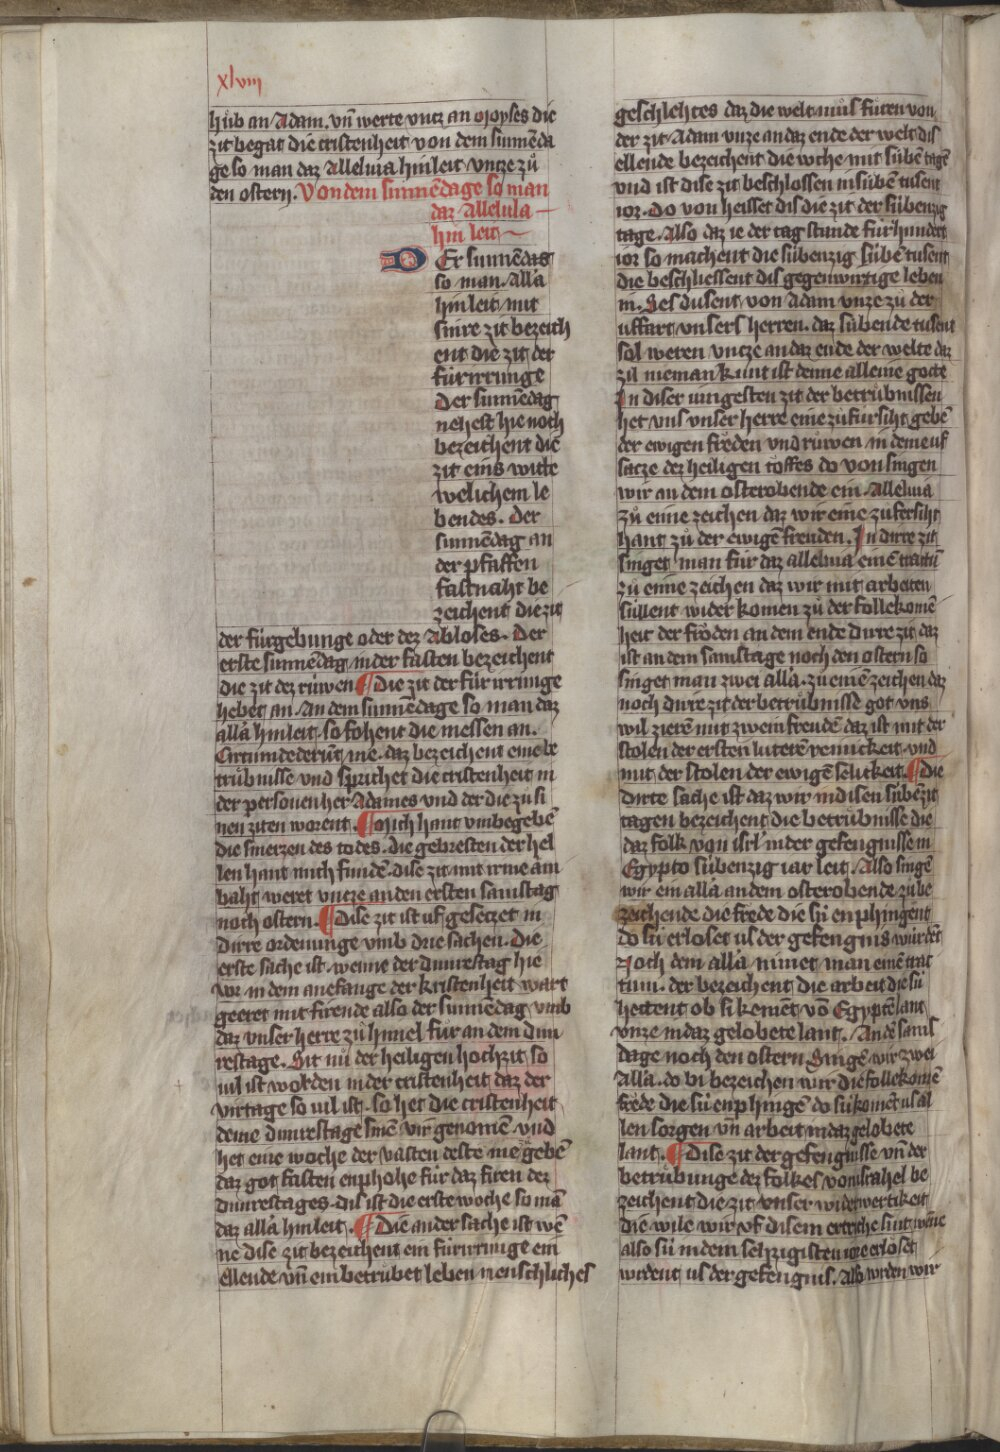 xlviii
hůb an Adam. vn̄ werte vntz an Moyses die
zit begat die cristenheit von dem sunnēda
ge so man daz Alleluia hinleit vntze zů
den ostern. Von dem sunnēdage so man
daz Allelula
hin leit
Der sunnēdag
so man alla
hinleit mit
sinre zit bezeich
ent die zit der
fúrirrunge
Der sunnēdag
nehest hie noch
bezeichent die
zit eins witte
welichem le
bendes. Der
sunnēdag an
der pfaffen
fastnaht be
zeichent die zit
der fúrgebunge oder dez Abloses. Der
erste sunnēdag in der fasten bezeichent
die zit dez rúwen ¶ Die zit der fúr irrunge
hebet an. An dem sunnēdage so man daz
alla hinleit. so fohent die messen an.
Circumdederūt me. daz bezeichent eine be
trúbnisse vnd sprichet die cristenheit in
der personen her Adames vnd der die zu si
nen ziten worent. ¶ Mich hant vmbegebē
die smerzen des todes. die gebresten der hel
len hant mich fundē. dise zit mit irme am
baht weret vntze an den ersten samstag
noch ostern. ¶ Dise zit ist uf gesetzet in
dirre ordenunge vmb drie sachen. Die
erste sache ist. wenne der dunrestag hie
vor in dem anefange der kristenheit wart
geeret mit firende also der sunnēdag vmb
daz vnser herre zů himel fůr an dem dun
restage. Sit nů der heiligen hochzit so
uil ist worden in der cristenheit daz der
virtage so uil ist. so het die cristenheit
deme dunrestage sinē vir genomē vnd
het eine woche der vasten deste me gebē
daz got fasten enphohe fúr daz firen dez
dunrestages. dis ist die erste woche so mā
daz alla hinleit. ¶ Die ander sache ist wē
ne dise zit bezeichent ein fúrirrunge ein
ellende vn̄ ein betrubet leben menschliches
geschlehtes daz die welt můs fúren von
der zit Adam vnze an daz ende der welt dis
ellende bezeichent die wche mit súbē tagē
vnd ist dise zit beschlossen in súbē tusent
ior. Do von heisset dis die zit der súbenzig
tage. Also daz ie der tag stunde fúr hundert
ior so machent die súbenzig súbē tusent
die beschliessent dis gegenwirtige leben
in. Ses dusent von Adam vnze zů der
uffart vnsers herren. daz súbende tusent
sol weren vntze an daz ende der welte daz
zil nieman kunt ist denne alleine gotte
In diser iungesten zit der betrůbnissen
het vns vnser herre eine zůfúrsiht gebē
der ewigen frǒden vnd růwen in deme uf
satze dez heiligen toffes do von singen
wir an dem osterobende ein Alleluia
zů eime zeichen daz wir eine zufersiht
hant zů der ewigē freuden. In dirre zit
singet man fúr daz alleluia einē tractū
zů eime zeichen daz wir mit arbeiten
súllent wider komen zů der follekomē
heit der frǒden an dem ende dirre zit daz
ist an dem samstage noch den ostern so
singet man zwei alla. zu einē zeichen daz
noch dirre zit der betrůbnisse got vns
wil zierē mit zwein freudē daz ist mit der
stolen der ersten luterē reinickeit vnd
mit der stolen der ewigē selickeit. ¶ Die
dirte sache ist daz wir in disen súbēzit
tagen bezeichent die betrúbnisse die
daz folk von isrl' in der gefengnisse in
Egypto súbenzig iar leit. Also singē
wir ein alla an dem osterobende zu be
zeichende die frede die sú enphingent
do sú erloset us der gefengnis wurdēt
Noch dem alla nimet man einē trac
tum. der bezeichent die arbeit die sú
hettent ob si kemēt võ Egyptē lant
vnze in daz gelobete lant. An dē sams
dage noch den ostern Singē wir zwei
Alla. do bi bezeichen wir die follekomē
frede die sú enphingē do sú komēt us al
len sorgen vn̄ arbeit in daz gelobete
lant. ¶ Dise zit der gefengnisse vn̄ der
betrůbunge dez folkes von israhel be
zeichent die zit vnser widerwertikeit
die wile wir vf disem ertriche sint wāne
also sú in dem sehzigisten iore erloset
wrdent us der gefengnis. Also wrden wir